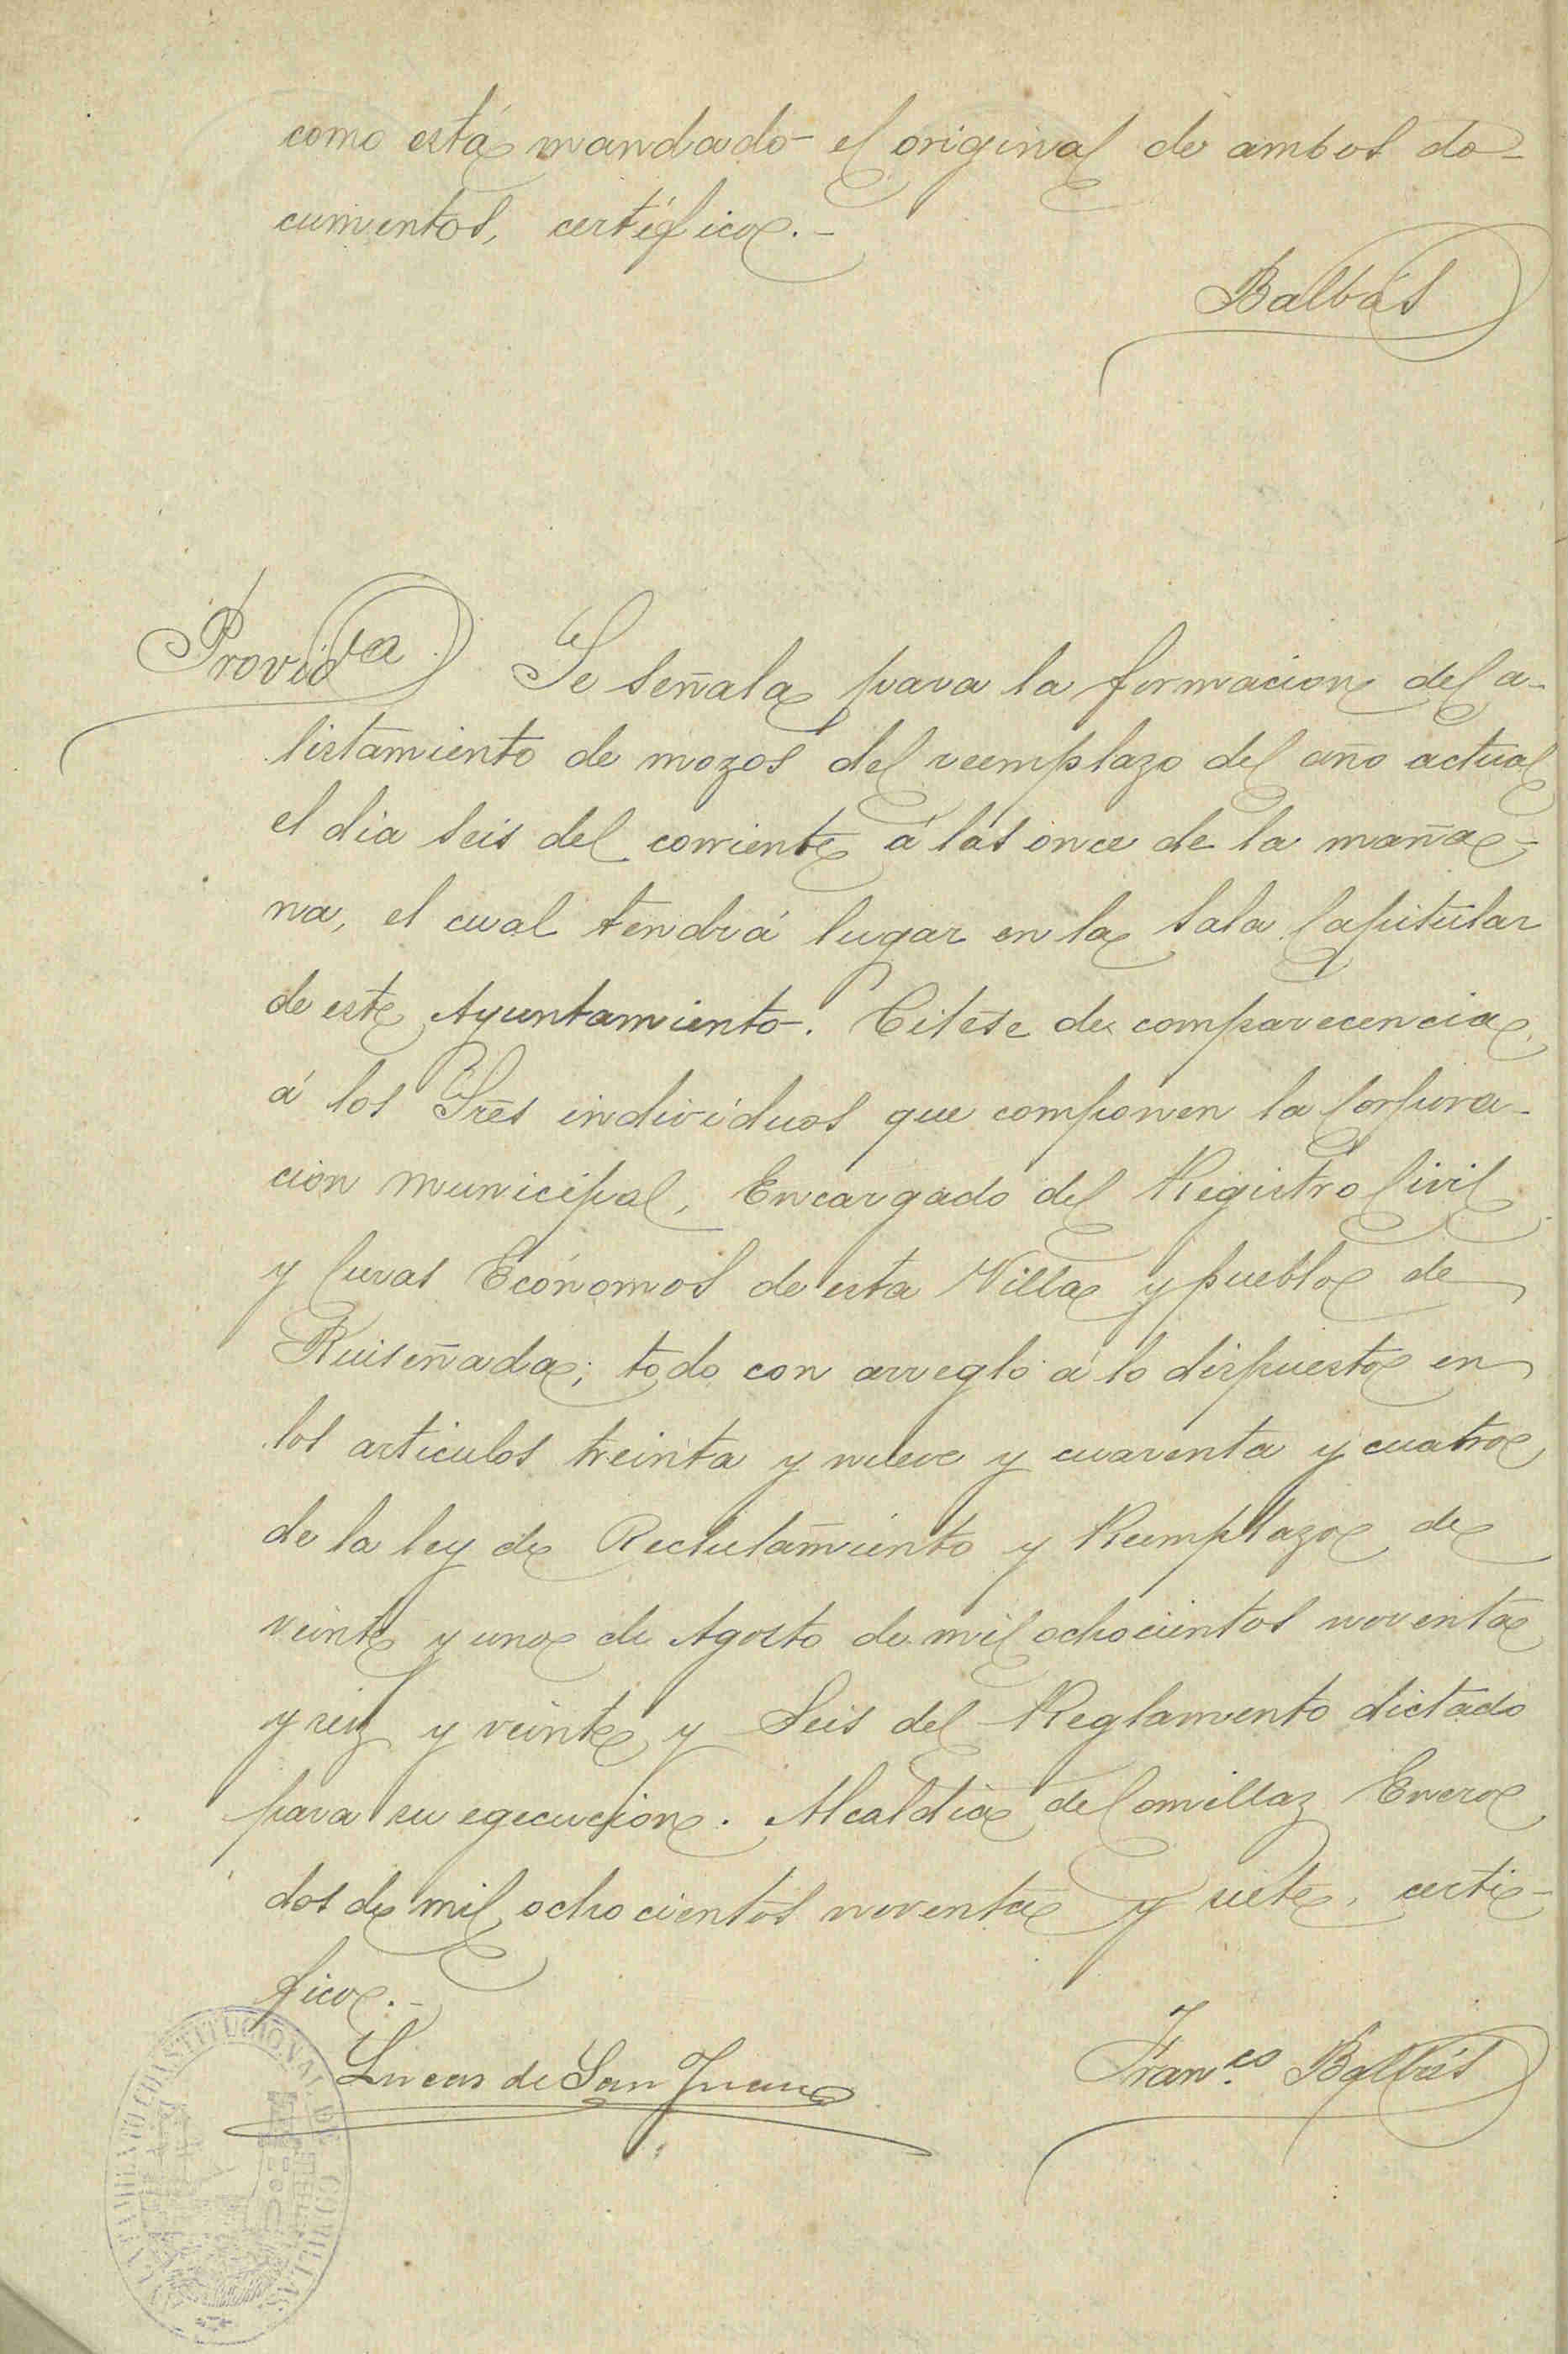 como está mandado el original de ambos do-
cumentos, certifico.-
Balbás
Provid^cia Se señala para la formacion del a-
listamiento de mozos del reemplazo del año actual
el dia seis del corriente á las once de la maña-
na, el cual tendrá lugar en la Sala Capitular
de este Ayuntamiento. Citese de comparecencia
á los Sres individuos que componen la Corpora-
cion municipal, Encargado del Registro Civil
y Curas Ecónomos de esta Villa y pueblo de
Ruiseñada; todo con arreglo á lo dispuesto en
los articulos treinta y nueve y cuarenta y cuatro
de la ley de Reclutamiento y Reemplazo de
veinte y uno de Agosto de mil ochocientos noventa
y seis y veinte y Seis del Reglamento dictado
para su egecucion. Alcaldia de Comillas Enero
dos de mil ochocientos noventa y siete, certi-
fico.-
Lucas de San Juan
Fran.co Balbás
AYUNTAMIENTO CONSTITUCIONAL DE COMILLAS